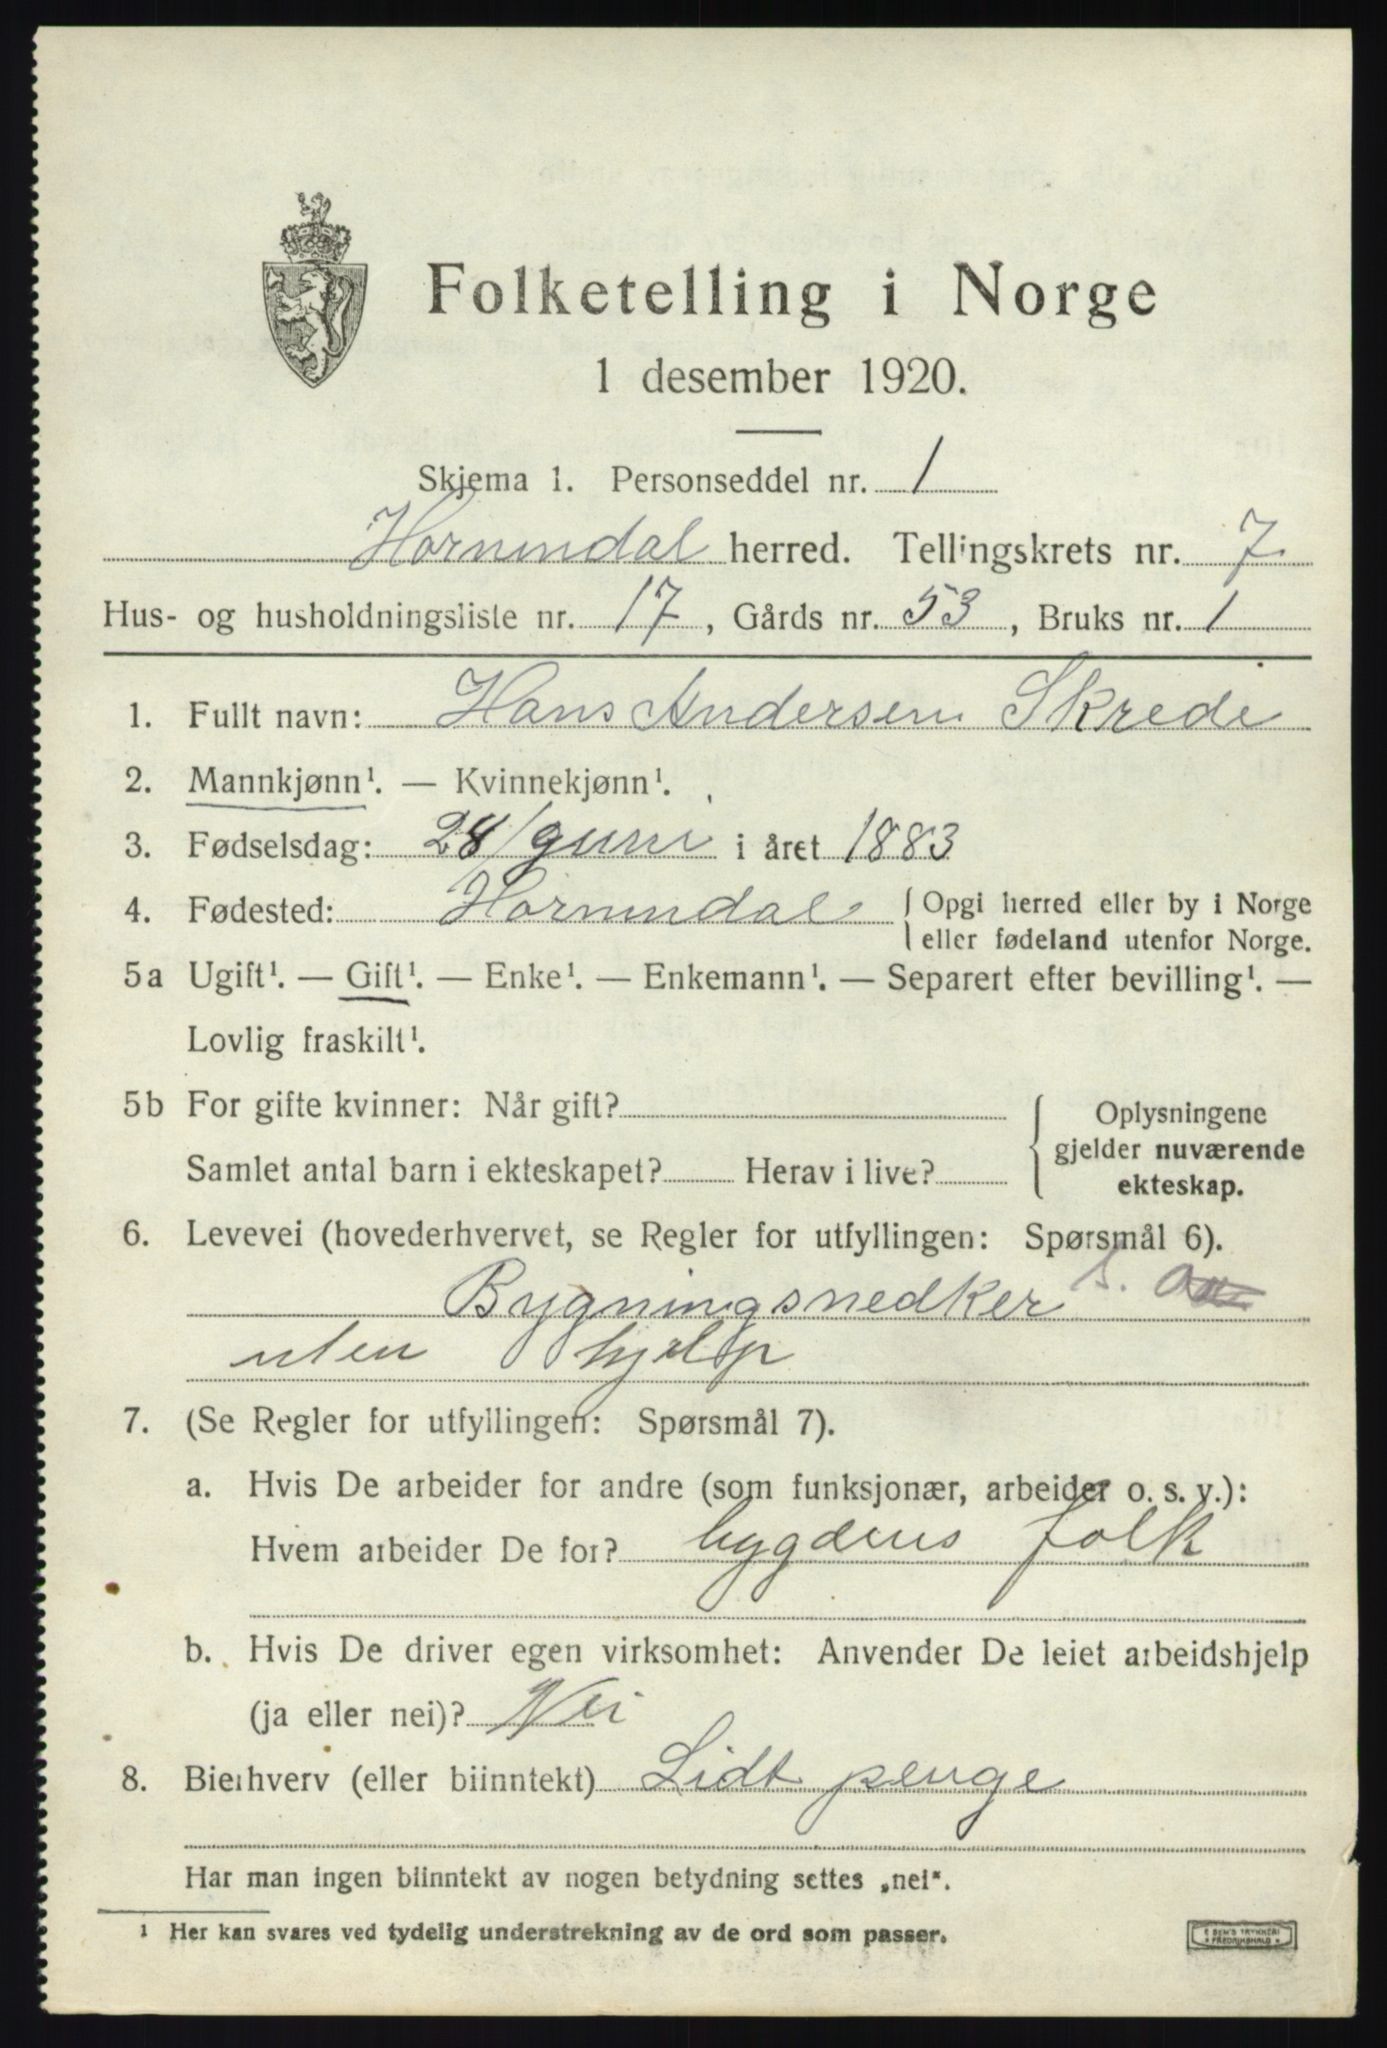 Folketelling i Norge
1 desember 1920.
Skjema 1. Personseddel nr. 1
Hornindal herred. Tellingskrets nr. 7
Hus- og husholdningsliste nr. 17, Gårds nr. 53, Bruks nr. 1
1. Fullt navn: Hans Andersen Skrede
2. Mannkjønn¹. — Kvinnekjønn¹.
3. Fødselsdag: 28/juni i året 1883
4. Fødested: Hornindal { Opgi herred eller by i Norge
eller fødeland utenfor Norge.
5a Ugift¹. — Gift¹. — Enke¹. — Enkemann¹. — Separert efter bevilling¹. —
Lovlig fraskilt¹.
5b For gifte kvinner: Når gift?
Samlet antal barn i ekteskapet? Herav i live?
Oplysningene
gjelder nuværende
ekteskap.
6. Levevei (hovederhvervet, se Regler for utfyllingen: Spørsmål 6).
Bygningsnedker s.
uten hjelp
7. (Se Regler for utfyllingen: Spørsmål 7).
a. Hvis De arbeider for andre (som funksjonær, arbeider o. s. v.):
Hvem arbeider De for? bygdens folk
b. Hvis De driver egen virksomhet: Anvender De leiet arbeidshjelp
(ja eller nei)? Nei
8. Bierhverv (eller biinntekt) Lidt penge
Har man ingen biinntekt av nogen betydning settes „nei“.
¹ Her kan svares ved tydelig understrekning av de ord som passer.